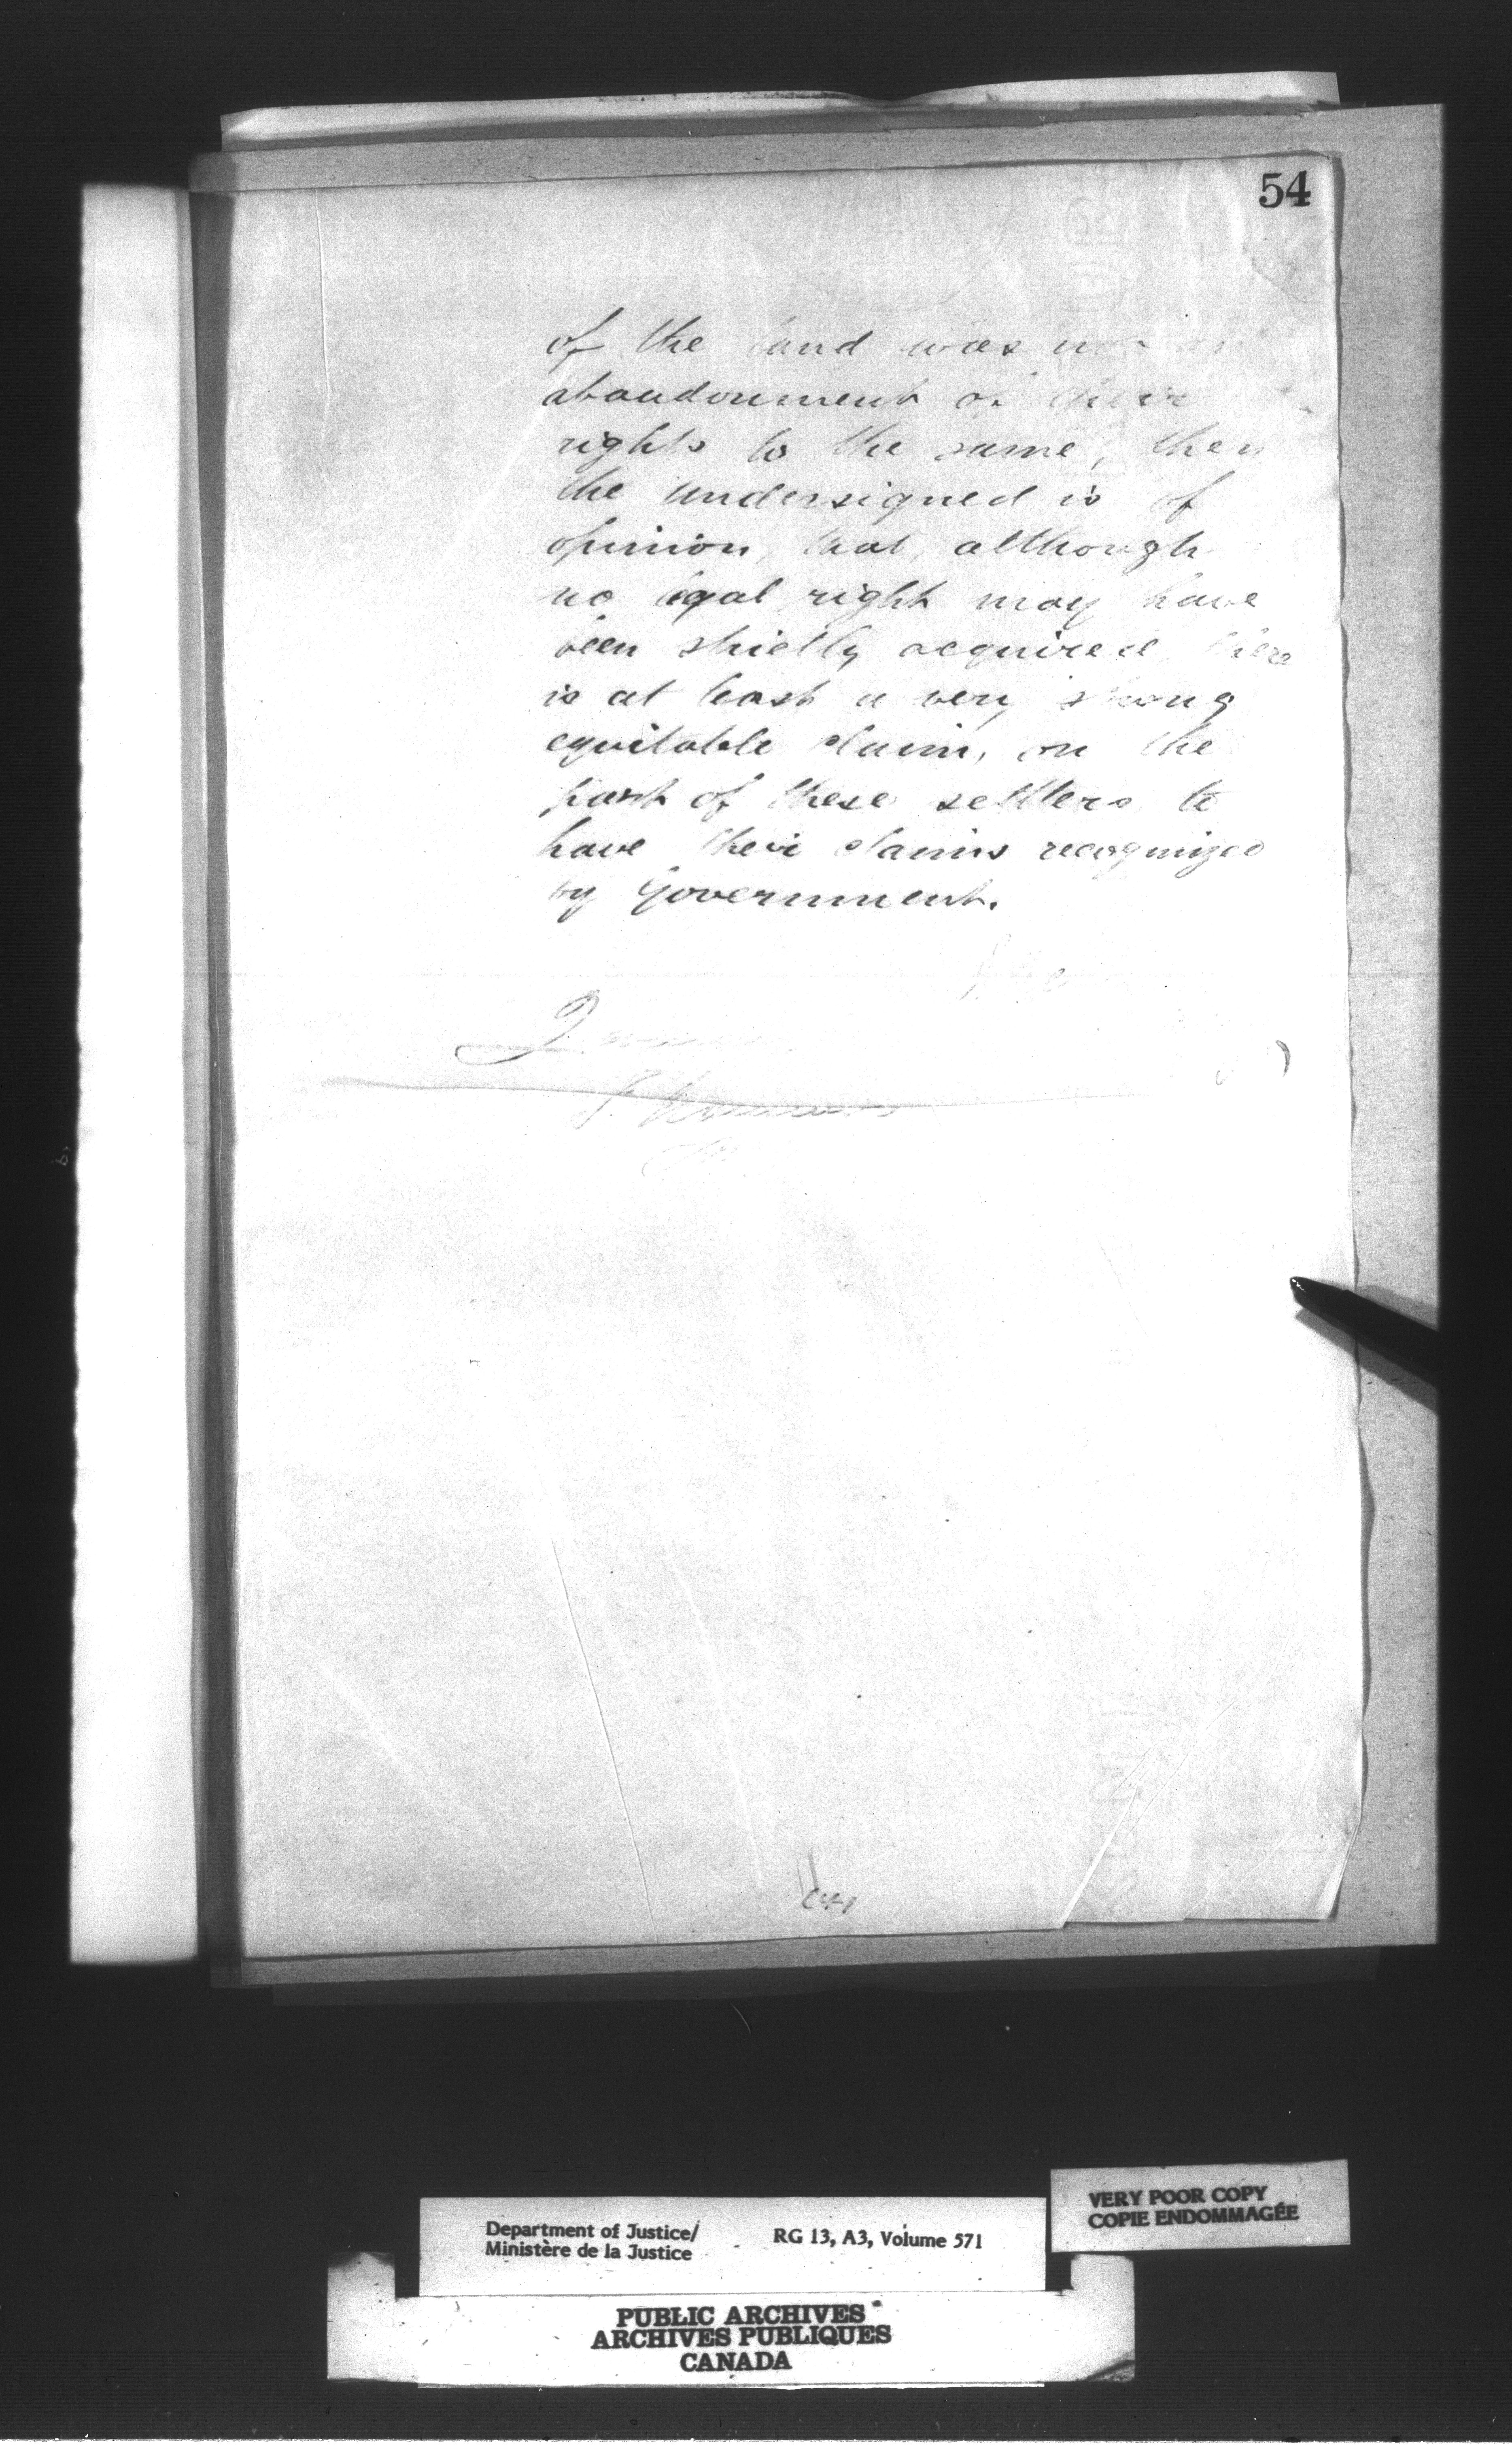 54
of the land was
abandonment of their
rights to the same, then
the undersigned is of
opinion, that, although
no legal right may have
been strictly acquired, there
is at least a very strong
equitable claim, on the
part of these settlers to
have their claims recognized
by Government.
Department of Justice/ RG 13, A3, Volume 571
Ministère de la Justice
VERY POOR COPY
COPIE ENDOMMAGÉE
PUBLIC ARCHIVES
ARCHIVES PUBLIQUES
CANADA